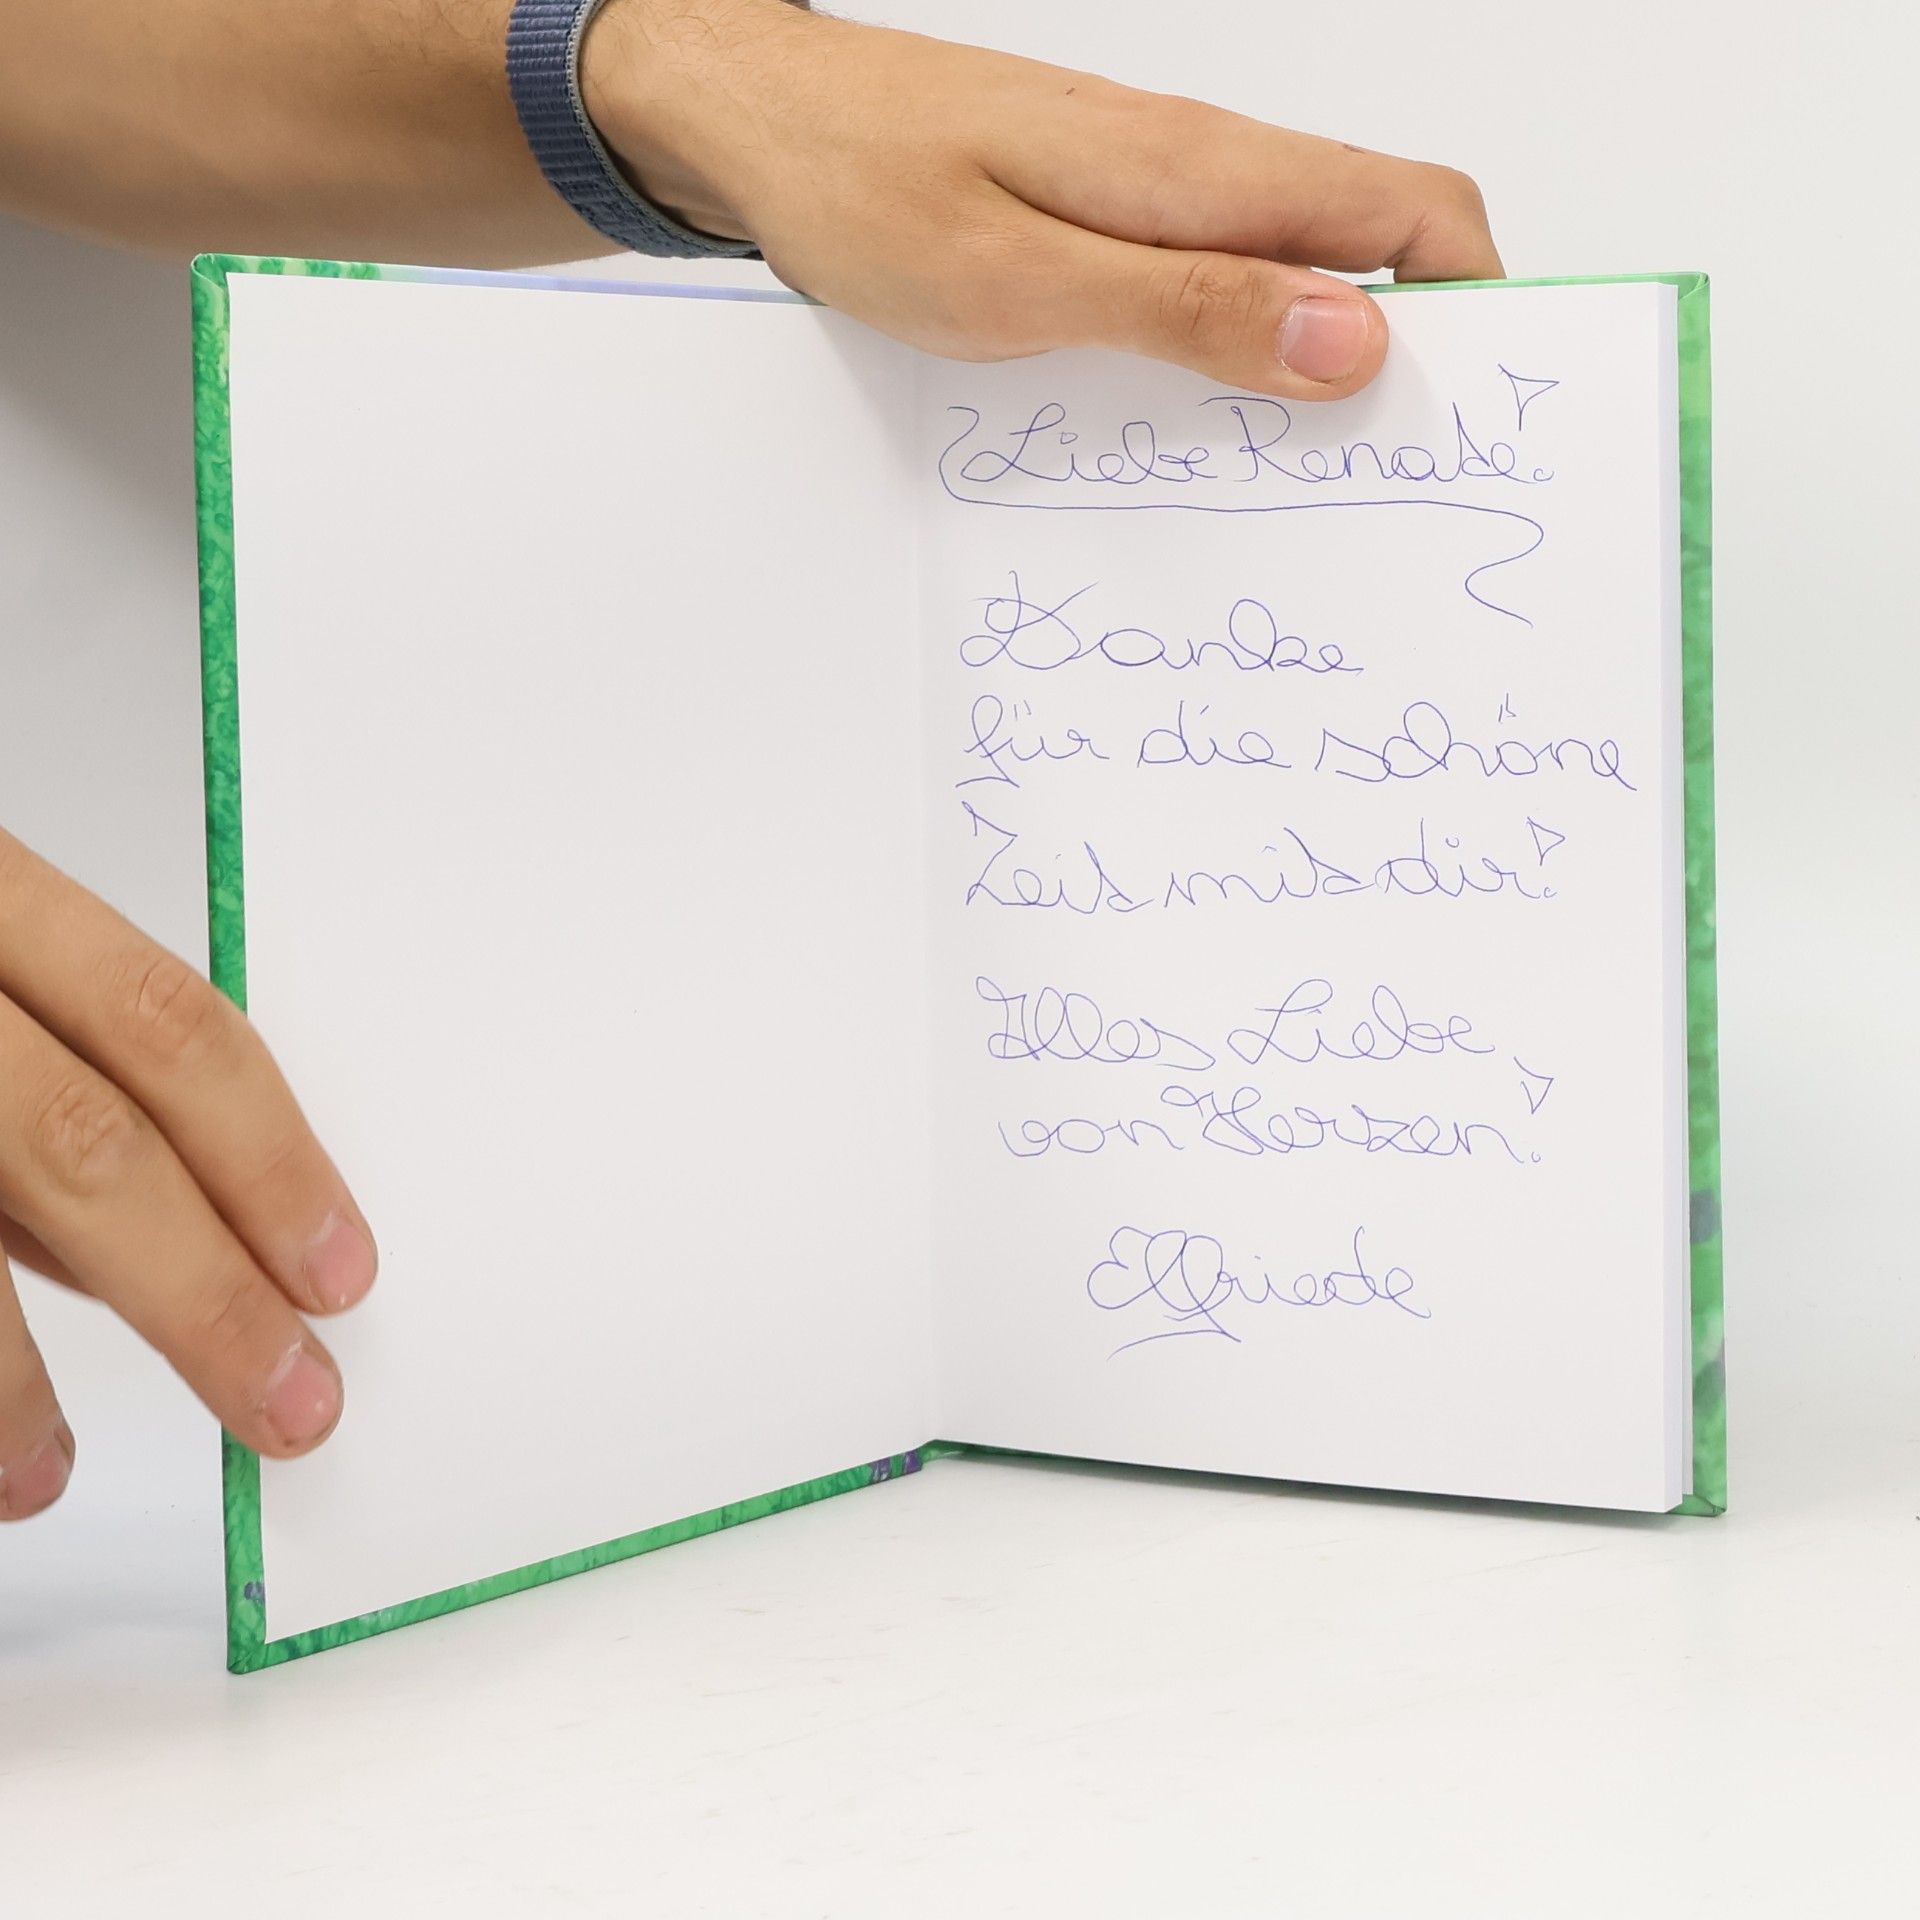 Liebe Renate!
Danke
für die schöne
Zeit mit dir!
Alles Liebe,
von Herzen!
Elfriede